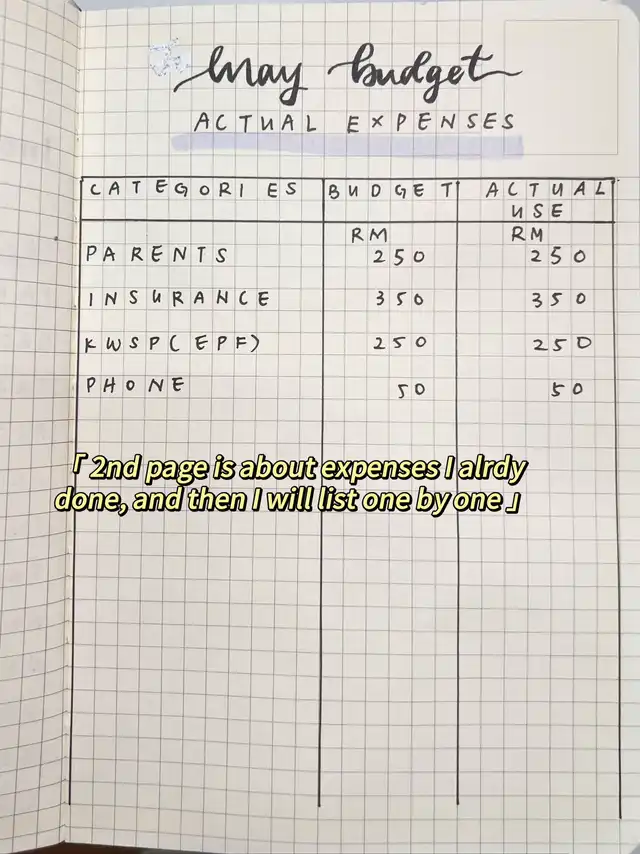 May budget
ACTUAL EXPENSES
CATEGORIES BUDGET ACTUAL USE
RM RM
PARENTS 250 250
INSURANCE 350 350
KWSP(EPF) 250 250
PHONE 50 50
「 2nd page is about expenses I alrdy
done, and then I will list one by one 」